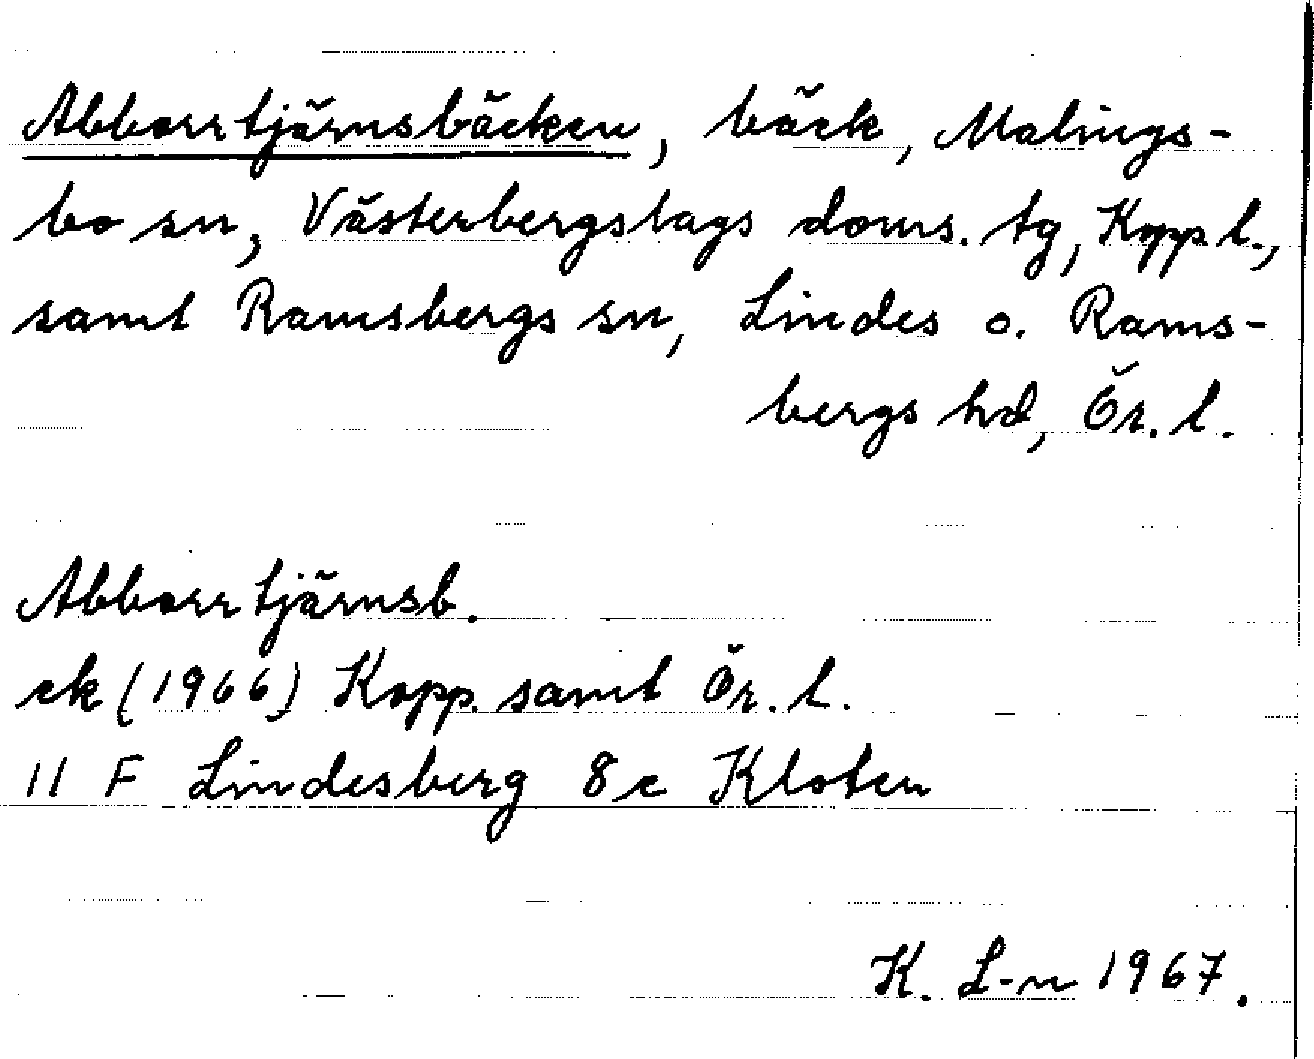 Abborrtjärnsbäcken, bäck, Malings-
bo sn, Västerbergslags doms. tg, Kopp l.,
samt Ramsbergs sn, Lindes o. Rams-
bergs hd, Ör. l.
Abborrtjärnsb.
ek (1966) Kopp. samt Ör. l.
11 F Lindesberg 8 c Kloten
K. L-n 1967.